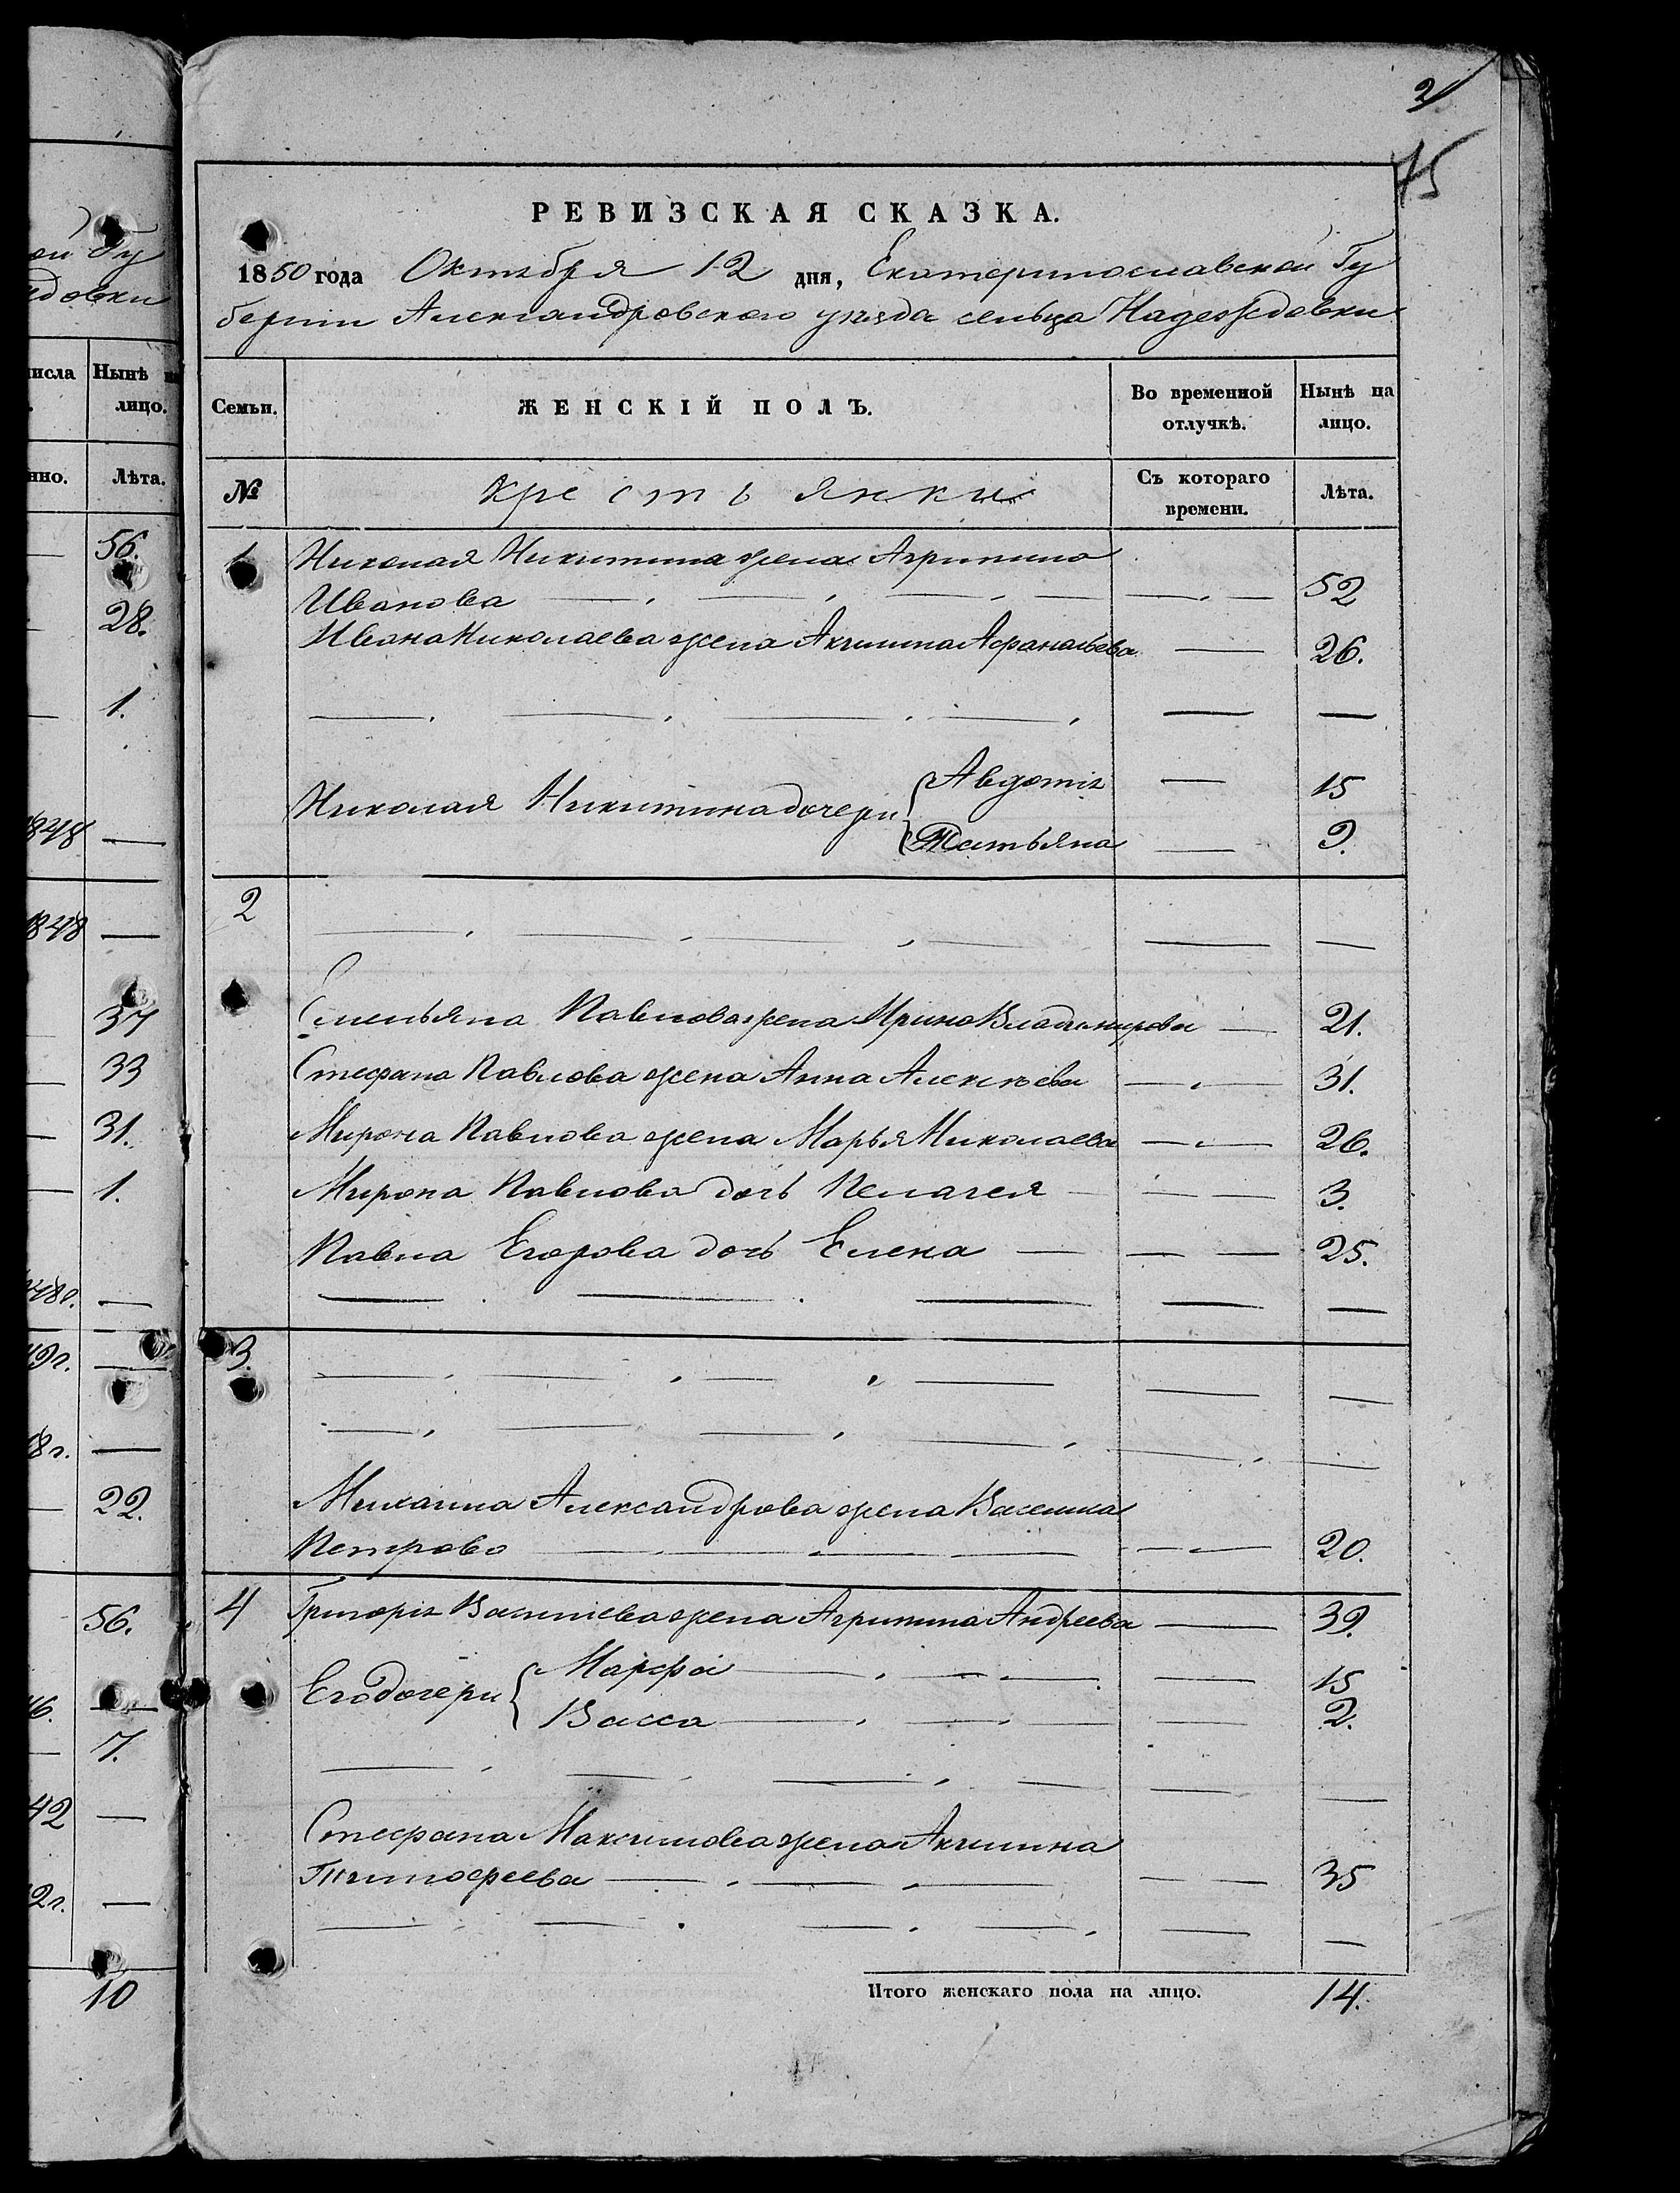 ой Гу
ждовки
числа Нынѣ на
лицо.
нно. Лѣта.
56.
28.
1.
1848 —
1848 —
37
33
31.
1.
—
—
—
22.
56.
—
7.
42 —
2г. —
10
2
75
РЕВИЗСКАЯ СКАЗКА.
1850 года Октября 12 дня, Екатеринославской Гу
берніи Александровского уѣзда сельца Надеждовки
Семьи. ЖЕНСКІЙ ПОЛЪ. Во временной отлучкѣ. Нынѣ на лицо.
№ Крестьянки Съ котораго времени. Лѣта.
1 Николая Никитина жена Агрипина
Иванова — 52
Ивана Николаева жена Акилина Афанасьева — 26.
— — —
Николая Никитина дочери Авдотія — 15
Татьяна — 9.
2 — — —
Емельяна Павлова жена Ирина Владимирова — 21.
Стефана Павлова жена Анна Алексѣева — 31.
Мирона Павлова жена Марья Николаева — 26.
Мирона Павлова дочь Пелагея — 3.
Павла Егорова дочь Елена — 25.
— — —
3. — — —
— — —
Михаила Александрова жена Василиса
Петрова — 20.
4 Григорія Васильева жена Агрипина Андреева — 39.
Его дочери Марфа — 15
Васса — 2.
— — —
Стефана Максимова жена Акилина
Тимофеева — 35
— — —
Итого женскаго пола на лицо. 14.